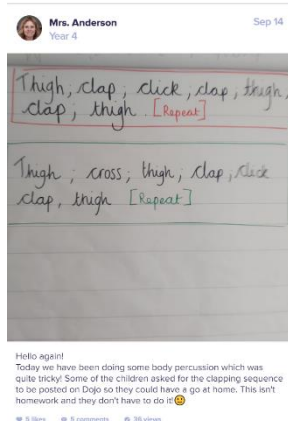 Mrs. Anderson
Sep 14
Year 4
Thigh, clap, click, clap, thigh,
clap, thigh. [Repeat]
Thigh, cross, thigh, clap, click
clap, thigh [Repeat]
Hello again!
Today we have been doing some body percussion which was
quite tricky! Some of the children asked for the clapping sequence
to be posted on Dojo so they could have a go at home. This isn't
homework and they don't have to do it!
5 likes 5 comments 36 views